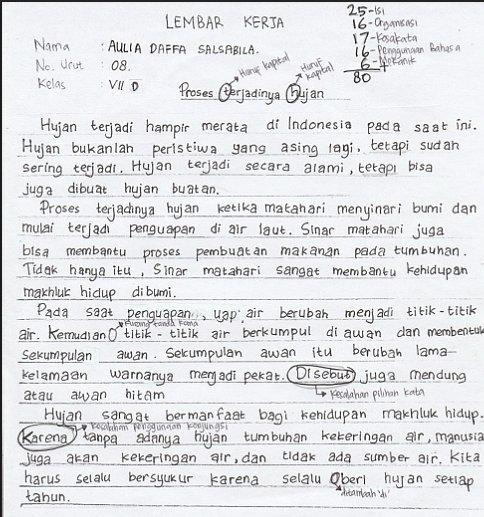 LEMBAR KERJA
25-Isi
16-Organisasi
17-Kosakata
16-Penggunaan Bahasa
6-Mekanik
+
80
Nama : AULIA DAFFA SALSABILA.
No. Urut : 08.
Kelas : VII D
Huruf kapital
Huruf kapital
Proses terjadinya hujan
Hujan terjadi hampir merata di Indonesia pada saat ini.
Hujan bukanlah peristiwa yang asing lagi, tetapi sudah
sering terjadi. Hujan terjadi secara alami, tetapi bisa
juga dibuat hujan buatan.
Proses terjadinya hujan ketika matahari menyinari bumi dan
mulai terjadi penguapan di air laut. Sinar matahari juga
bisa membantu proses pembuatan makanan pada tumbuhan.
Tidak hanya itu, Sinar matahari sangat membantu kehidupan
makhluk hidup dibumi.
Pada saat penguapan, uap air berubah menjadi titik-titik
Kurang tanda koma
air. Kemudian titik-titik air berkumpul di awan dan membentuk
Sekumpulan awan. Sekumpulan awan itu berubah lama-
kelamaan warnanya menjadi pekat. Disebut juga mendung
Kesalahan pilihan kata
atau awan hitam
Hujan sangat bermanfaat bagi kehidupan makhluk hidup.
Kesalahan penggunaan konjungsi
Karena tanpa adanya hujan tumbuhan kekeringan air, manusia
juga akan kekeringan air, dan tidak ada sumber air. Kita
harus selalu bersyukur karena selalu beri hujan setiap
ditambah 'di'
tahun.